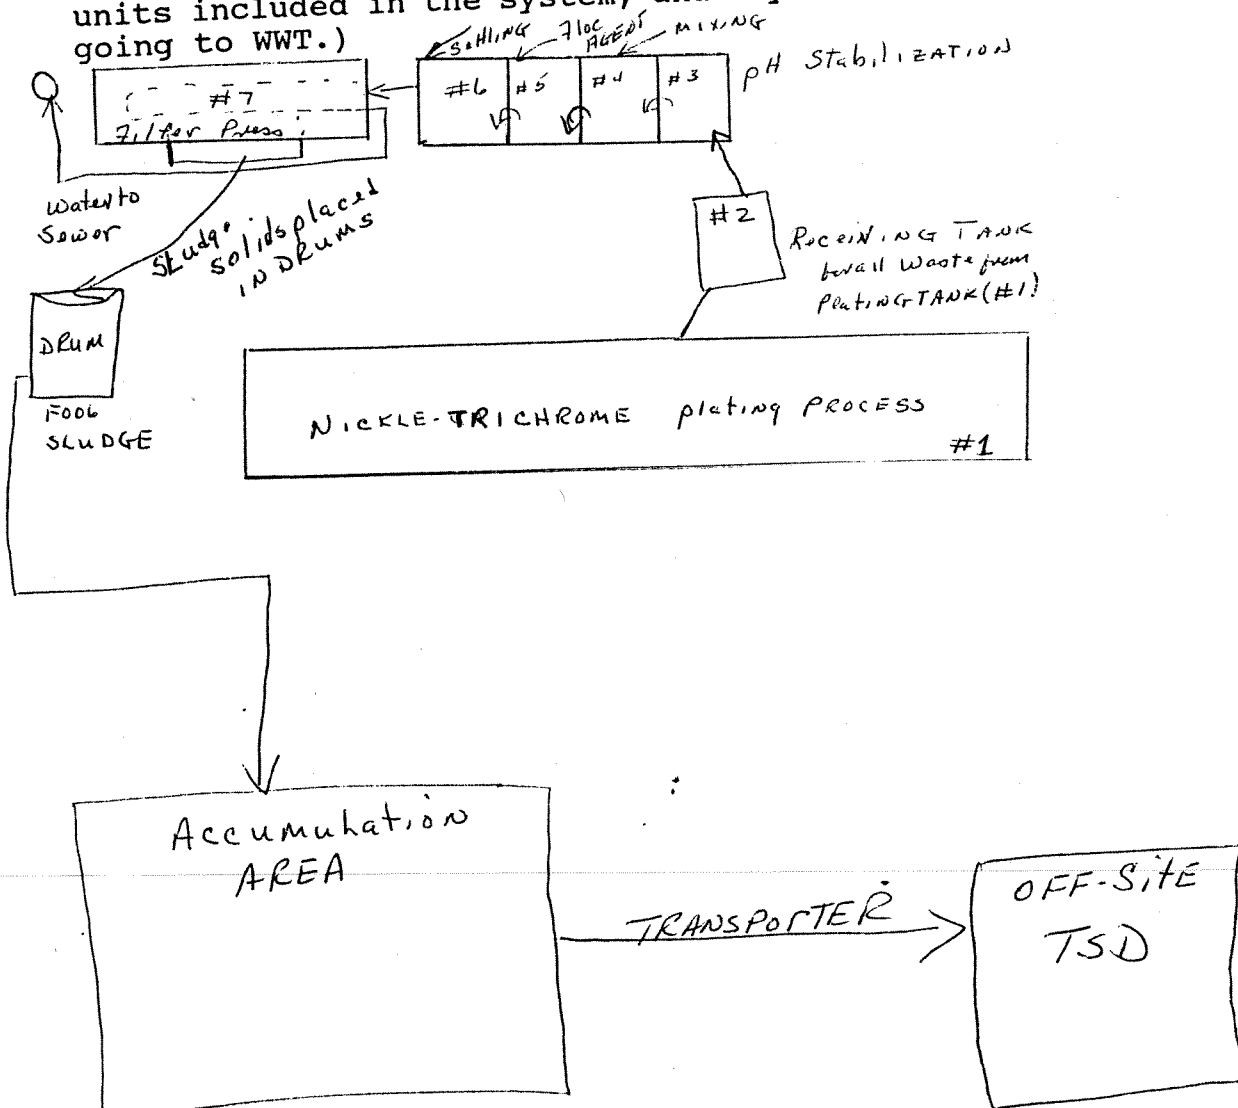 units included in the system, and
going to WWT.)
settling
Floc
AGENT
MIXING
pH StabiliZATION
#7
Filter Press
#6
#5
#4
#3
Water to
Sewer
Sludge
solids placed
IN DRUMS
#2
ReceiviNG TANK
for all Waste from
PlatiNG TANK (#1)
DRUM
F006
SLUDGE
NICKLE-TRICHROME platiNg PROCESS
#1
Accumulation
AREA
TRANSPORTER
OFF-SitE
TSD